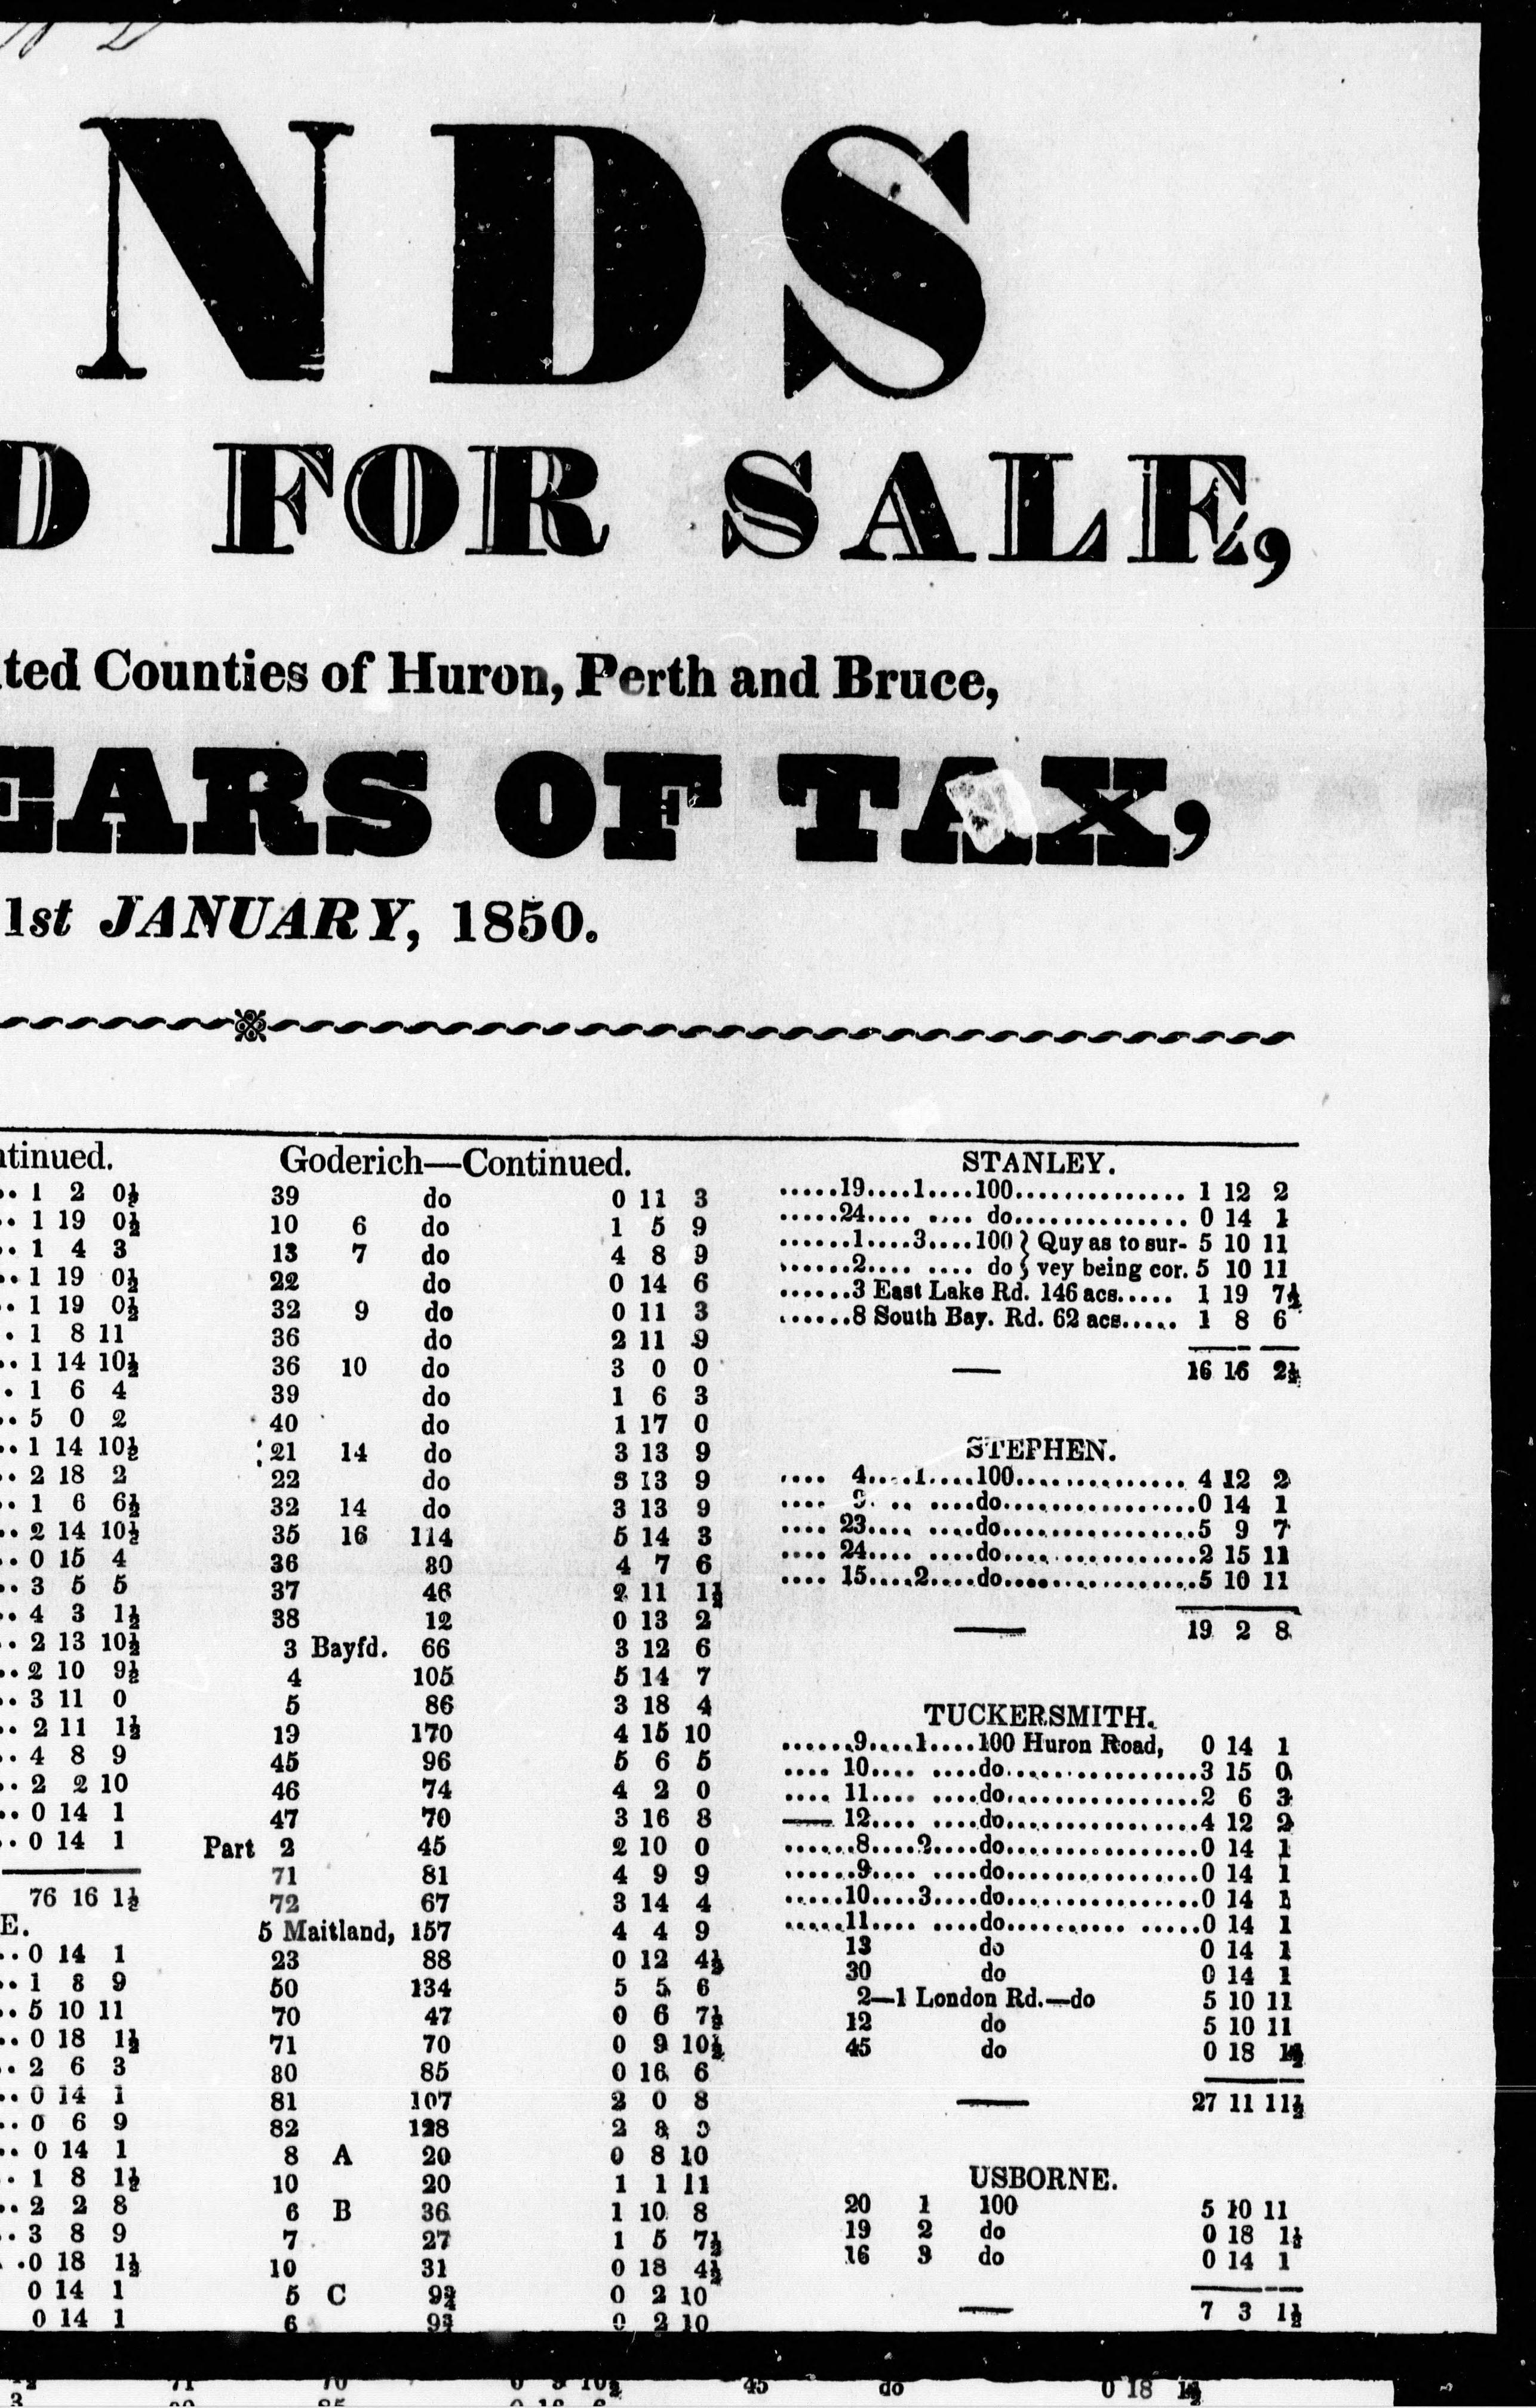 NDS
D FOR SALE,
ted Counties of Huron, Perth and Bruce,
EARS OF TAX,
1st JANUARY, 1850.
tinued.
.. 1 2 0½
.. 1 19 0½
.. 1 4 3
.. 1 19 0½
.. 1 19 0½
. 1 8 11
.. 1 14 10½
. 1 6 4
.. 5 0 2
.. 1 14 10½
.. 2 18 2
.. 1 6 6½
.. 2 14 10½
.. 0 15 4
.. 3 5 5
.. 4 3 1½
.. 2 13 10½
.. 2 10 9½
.. 3 11 0
.. 2 11 1½
.. 4 8 9
.. 2 2 10
.. 0 14 1
.. 0 14 1
76 16 1½
E.
.. 0 14 1
.. 1 8 9
.. 5 10 11
.. 0 18 1½
.. 2 6 3
.. 0 14 1
.. 0 6 9
.. 0 14 1
.. 1 8 1½
.. 2 2 8
.. 3 8 9
. .0 18 1½
0 14 1
0 14 1
Goderich—Continued.
39 do 0 11 3
10 6 do 1 5 9
13 7 do 4 8 9
22 do 0 14 6
32 9 do 0 11 3
36 do 2 11 9
36 10 do 3 0 0
39 do 1 6 3
40 do 1 17 0
21 14 do 3 13 9
22 do 3 13 9
32 14 do 3 13 9
35 16 114 5 14 3
36 80 4 7 6
37 46 2 11 1½
38 12 0 13 2
3 Bayfd. 66 3 12 6
4 105 5 14 7
5 86 3 18 4
19 170 4 15 10
45 96 5 6 5
46 74 4 2 0
47 70 3 16 8
Part 2 45 2 10 0
71 81 4 9 9
72 67 3 14 4
5 Maitland, 157 4 4 9
23 88 0 12 4½
50 134 5 5 6
70 47 0 6 7½
71 70 0 9 10½
80 85 0 16 6
81 107 2 0 8
82 128 2 8
8 A 20 0 8 10
10 20 1 1 11
6 B 36 1 10 8
7 27 1 5 7½
10 31 0 18 4½
5 C 9¾ 0 2 10
6 9¾ 0 2 10
STANLEY.
.....19....1....100.............. 1 12 2
.....24.... .... do............... 0 14 1
......1....3....100 } Quy as to sur- 5 10 11
......2.... .... do } vey being cor. 5 10 11
......3 East Lake Rd. 146 acs..... 1 19 7½
......8 South Bay. Rd. 62 acs..... 1 8 6
— 16 16 2½
STEPHEN.
.... 4....1....100.............. 4 12 2
.... .. ....do................0 14 1
.... 23.... ....do................5 9 7
.... 24.... ....do................2 15 11
.... 15....2....do................5 10 11
— 19 2 8
TUCKERSMITH.
......9....1....100 Huron Road, 0 14 1
.... 10.... ....do................3 15 0
.... 11.... ....do................2 6 3
— 12.... ....do................4 12 2
......8....2....do................0 14 1
......9.... ....do................0 14 1
.....10....3....do................0 14 1
.....11.... ....do.......... .....0 14 1
13 do 0 14 1
30 do 0 14 1
2—1 London Rd.—do 5 10 11
12 do 5 10 11
45 do 0 18 1½
— 27 11 11½
USBORNE.
20 1 100 5 10 11
19 2 do 0 18 1½
16 3 do 0 14 1
— 7 3 1½
45 do 0 18 1½